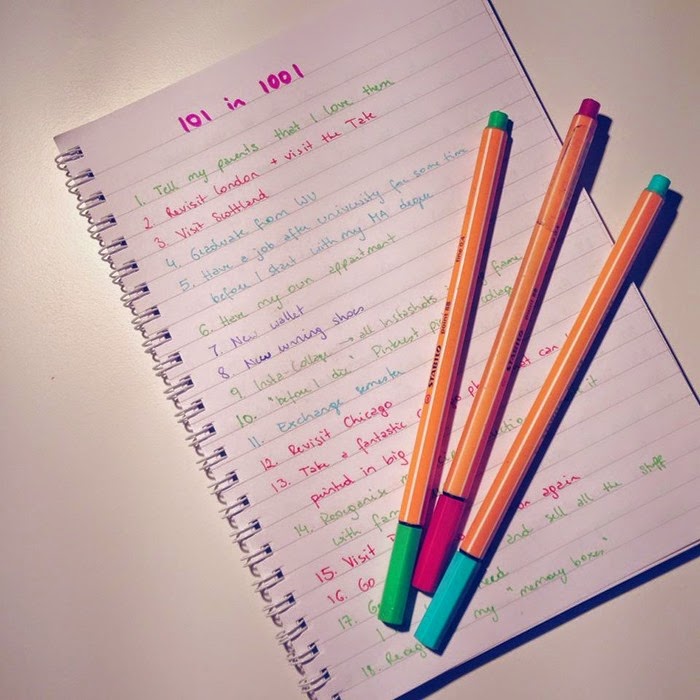 101 in 1001
1. Tell my parents that I love them
2. Revisit London + visit the Tate
3. Visit Scottland
4. Graduate from WU
5. Have a job after university for some time
before I start with my MA degree
6. Have my own appartment
7. New wallet
8. New running shoes
9. Insta-Collage → all Instashots frame
10. "before I die" Pinterest
11. Exchange semester
12. Revisit Chicago
13. Take a fantastic can
printed in big
14. Reorganise it
with
15. Visit again
16. Go
17. need and sell all the stuff
I
18. my "memory boxes"
STABILO
STABILO